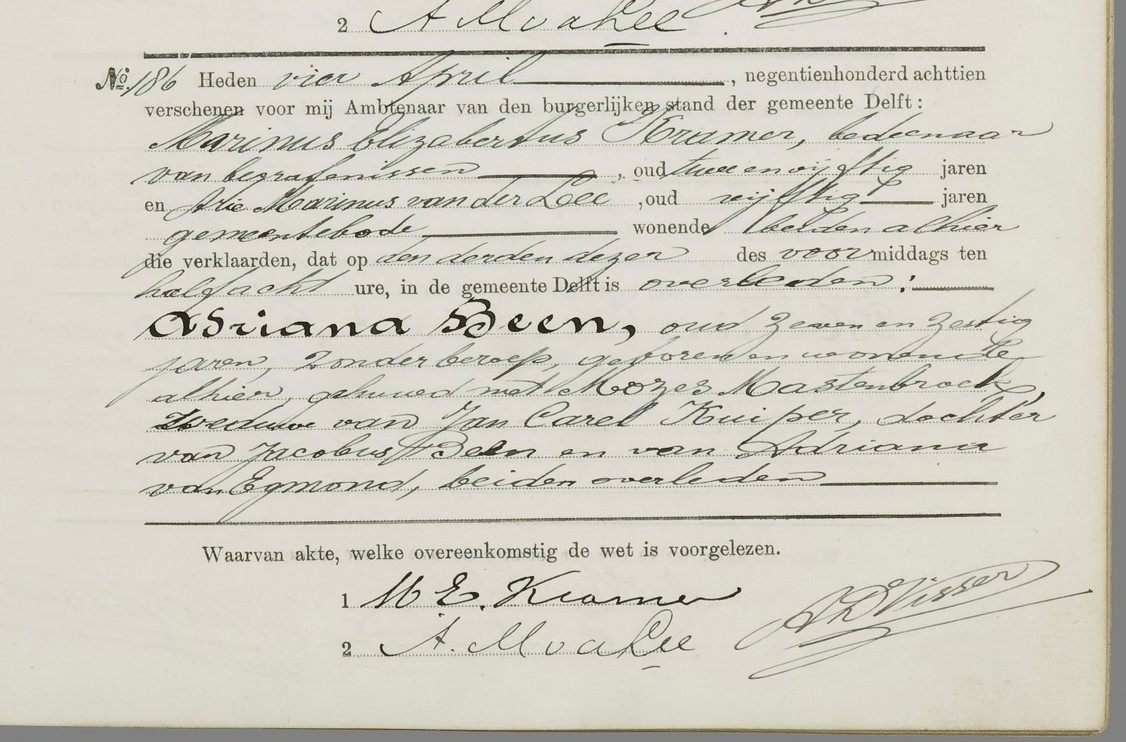 2 A M v d Lee
No. 186 Heden vier April, negentienhonderd achttien
verschenen voor mij Ambtenaar van den burgerlijken stand der gemeente Delft:
Marinus Elizabertus Kramer, bedienaar
van begrafenissen, oud twee en vijftig jaren
en Arie Marinus van der Lee, oud vijftig jaren
gemeentebode wonende beiden alhier
die verklaarden, dat op den derden dezer des voormiddags ten
half acht ure, in de gemeente Delft is overleden:
Adriana Been, oud zeven en zestig
jaren, zonder beroep, geboren en wonende
alhier, gehuwd met Mozes Mastenbroek
weduwe van Jan Carel Kuiper, dochter
van Jacobus Been en van Adriana
van Egmond, beiden overleden
Waarvan akte, welke overeenkomstig de wet is voorgelezen.
1 M E. Kramer
2 A. M v d Lee
Visser